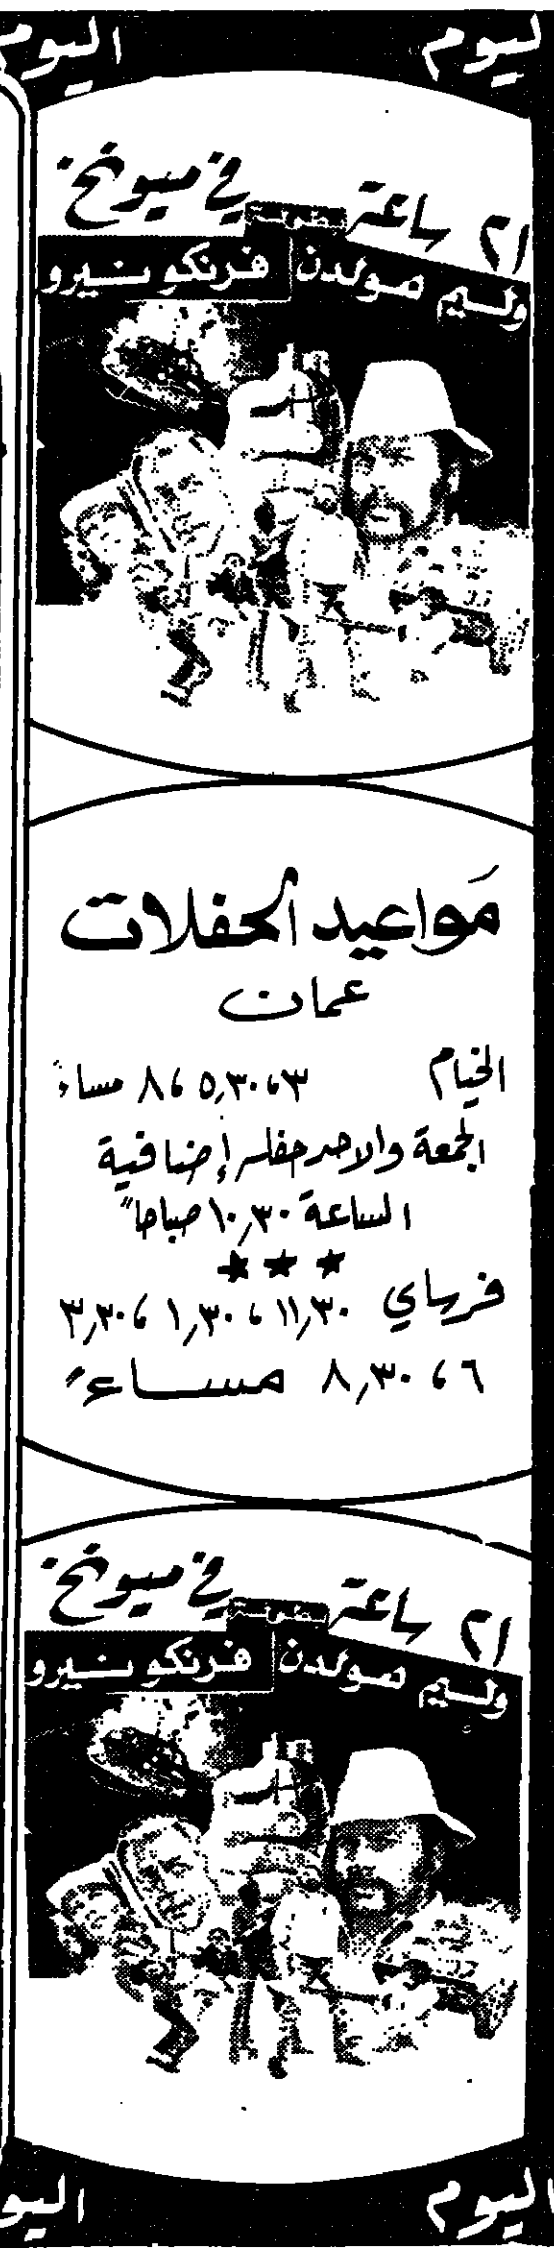 اليوم
ليوم
٢١ ساعة في ميونخ
وليم هولدن فرنكو نيرو
مَواعيد الحفلات
عمان
الخيام ٣، ٥,٣٠، ٨ مساءً
الجمعة والاحد حفلة إضافية
الساعة ١٠,٣٠ صباحاً
★ ★ ★
فرساي ١١,٣٠، ١,٣٠، ٣,٣٠،
٦، ٨,٣٠ مساءً
٢١ ساعة في ميونخ
وليم هولدن فرنكو نيرو
اليوم
اليو